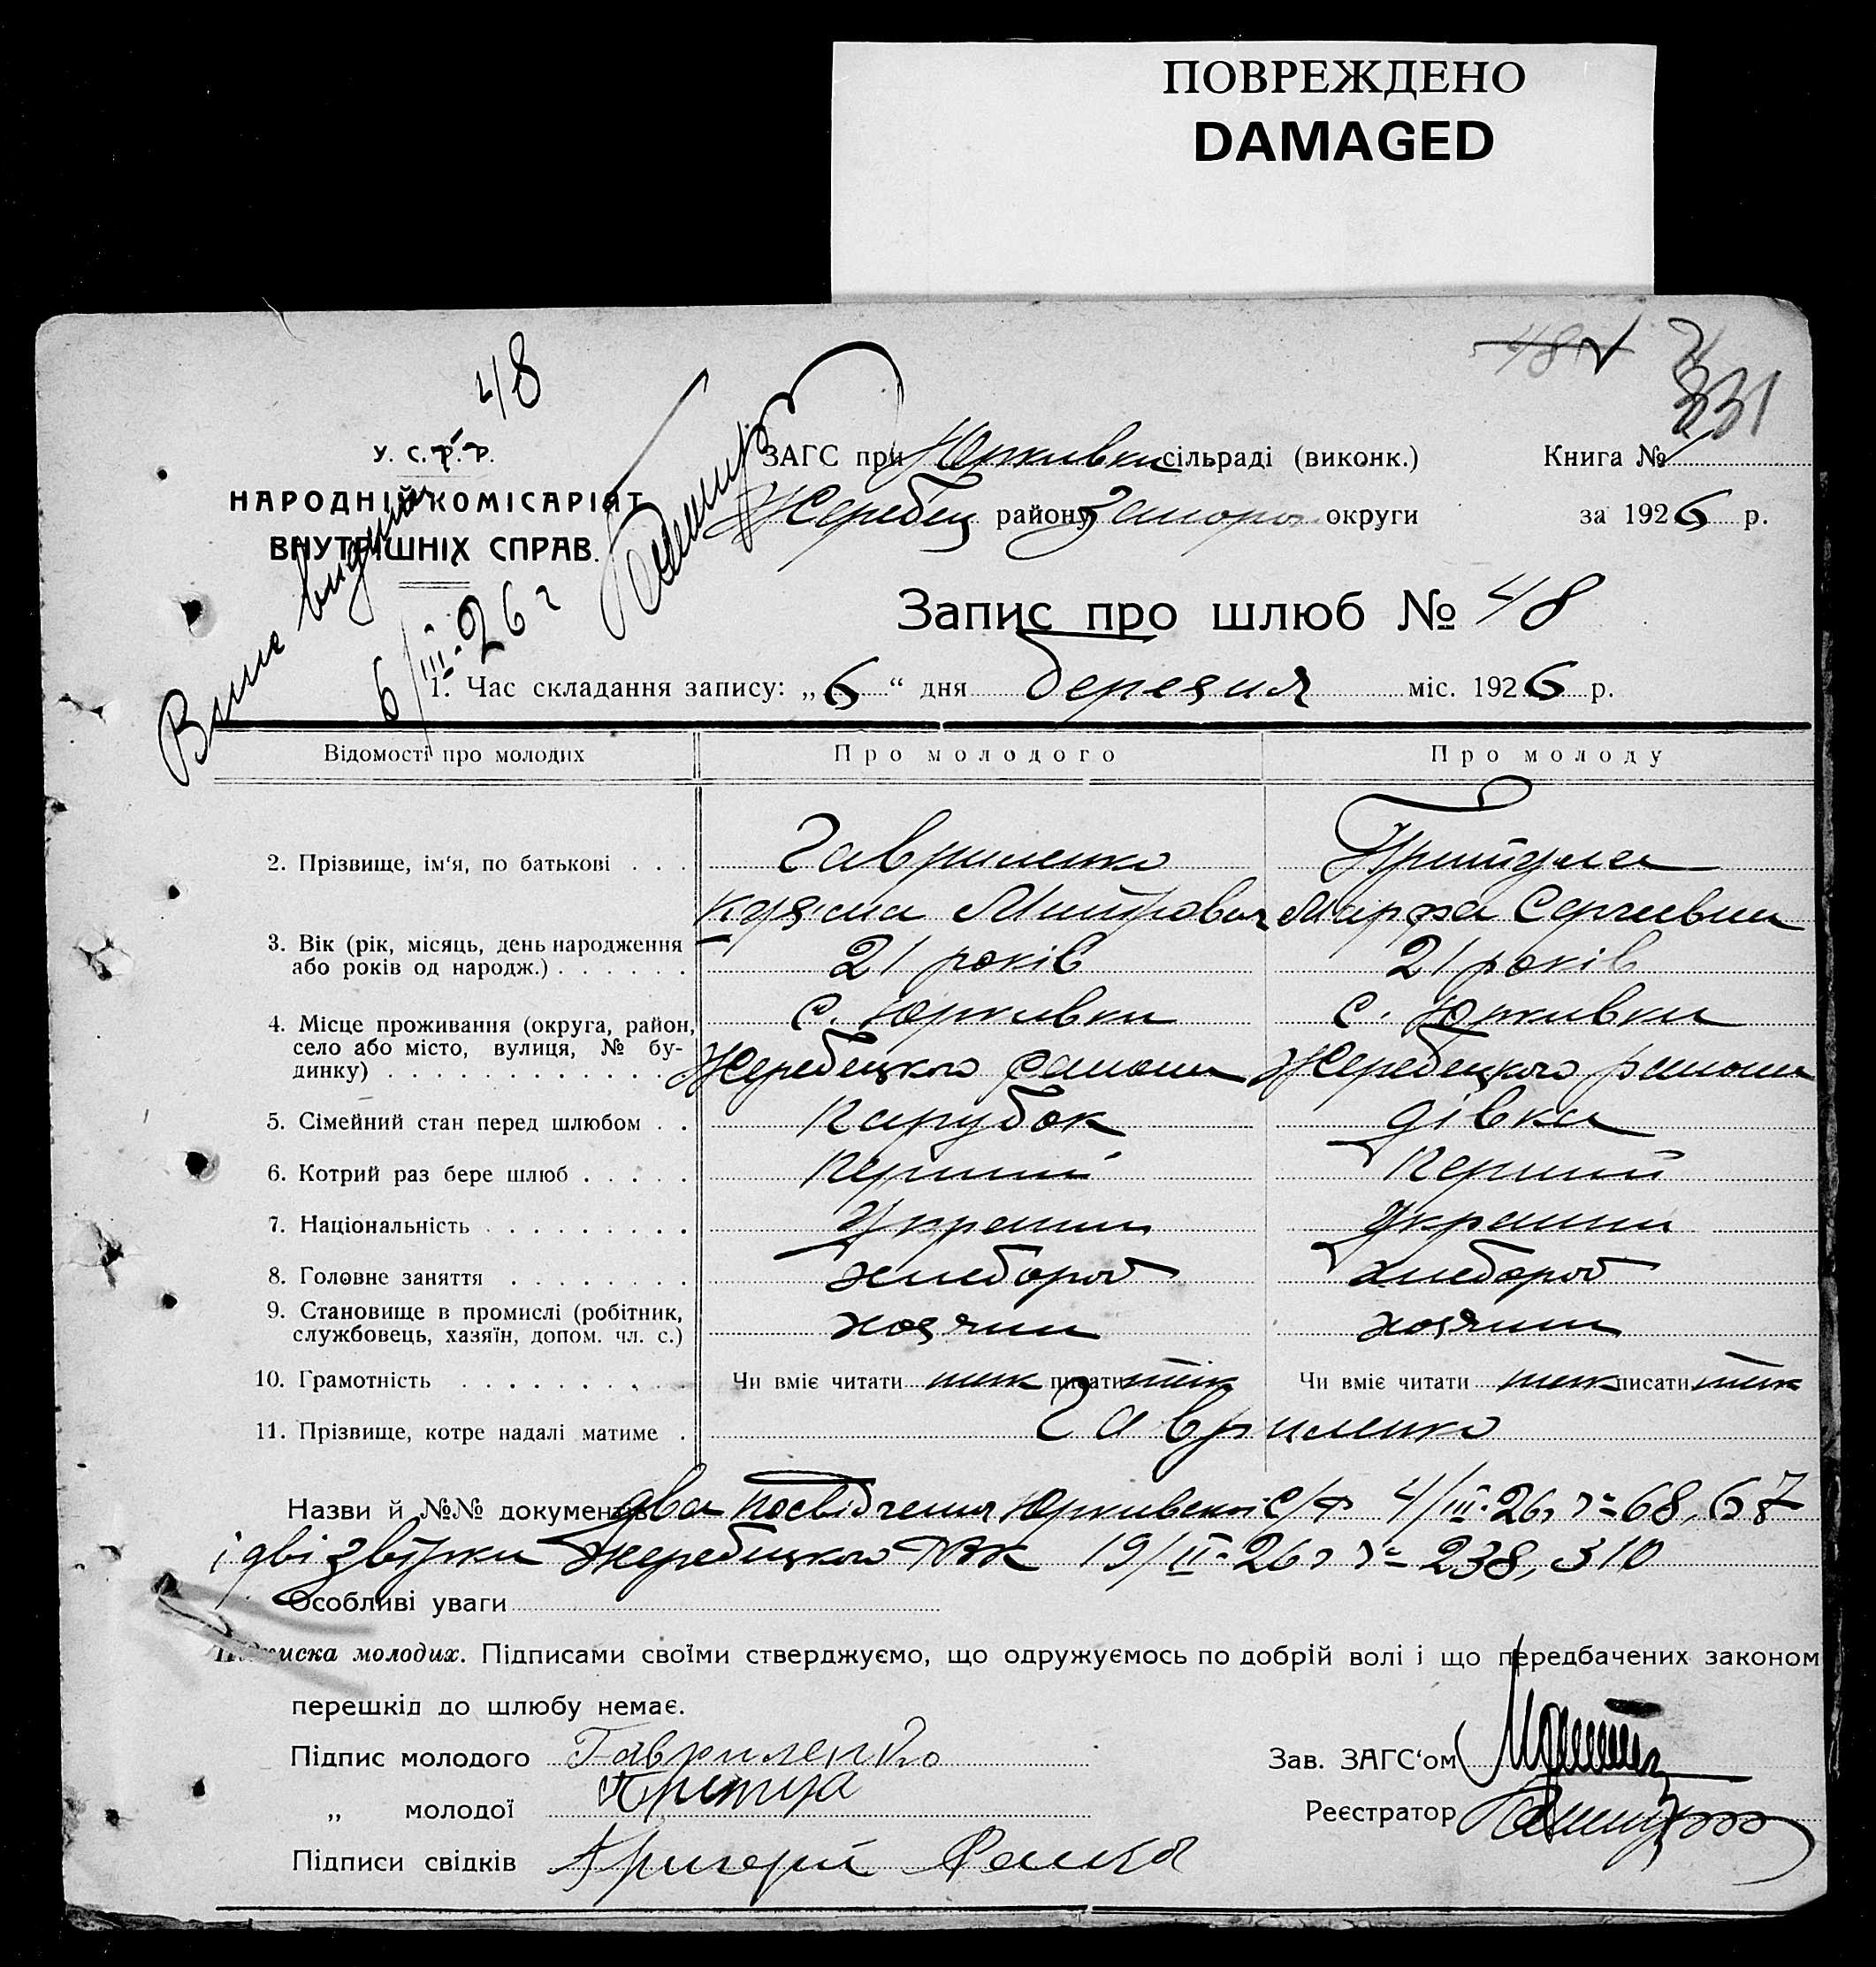 ПОВРЕЖДЕНО
DAMAGED
48
48
331
У. С. Р. Р.
НАРОДНІЙ КОМІСАРІЯТ
ВНУТРІШНІХ СПРАВ.
ЗАГС при Юркивки сільраді (виконк.)
Книга №
Жеребец району Запоро округи
за 1926 р.
6/III-26 г
Запис про шлюб № 48
1. Час складання запису: „6“ дня березня міс. 1926 р.
Відомості про молодих
Про молодого
Про молоду
2. Прізвище, ім‘я, по батькові . . .
Гавриленко
Кузьма Митрович
Марфа Сергиевна
3. Вік (рік, місяць, день народження
або років од народж.) . . . . . .
21 років
21 років
4. Місце проживання (округа, район,
село або місто, вулиця, № бу-
динку) . . . . . . . . . . . .
с. Юркивки
Жеребецкого района
с. Юркивки
Жеребецкого района
5. Сімейний стан перед шлюбом . .
парубок
дівка
6. Котрий раз бере шлюб . . . . .
перший
перший
7. Національність . . . . . . . . .
Украин
Украин
8. Головне заняття . . . . . . . .
хлебороб
хлебороб
9. Становище в промислі (робітник,
службовець, хазяїн, допом. чл. с.)
хозяин
хозяин
10. Грамотність . . . . . . . . . .
Чи вміє читати так писати так
Чи вміє читати так писати так
11. Прізвище, котре надалі матиме .
Гавриленко
Назви й №№ документів два посвідчення Юркивской с/р 4/III-26 г № 68, 67
і дві Жеребецкого РВК 19/II-26 г № 238, 310
Особливі уваги
Підписка молодих. Підписами своїми стверджуємо, що одружуємось по добрій волі і що передбачених законом
перешкід до шлюбу немає.
Підпис молодого Гавриленко
„ молодої
Зав. ЗАГС‘ом
Реєстратор
Підписи свідків Григорій